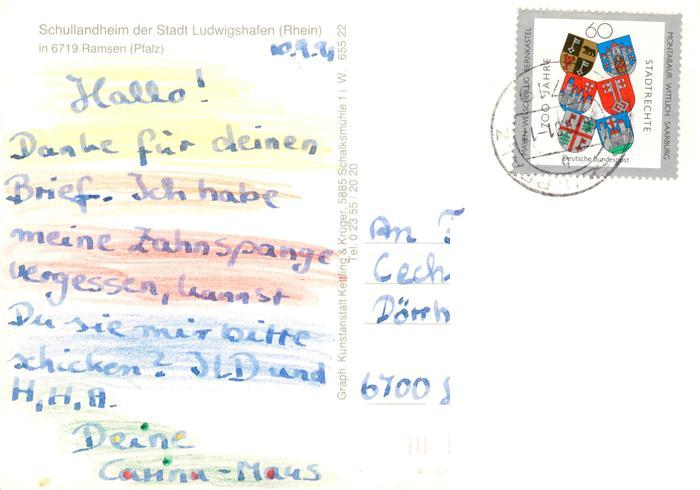 Schullandheim der Stadt Ludwigshafen (Rhein)
in 6719 Ramsen (Pfalz)
Hallo!
Danke für deinen
Brief. Ich habe
meine Zahnspange
vergessen, kannst
Du sie mir bitte
schicken? ILD und
H.H.A.
Deine
Carina-Maus
Graph. Kunstanstalt Kettling & Krüger, 5885 Schalksmühle 1 i. W. 655 22
Tel. 0 23 55 / 20 20
60
700 JAHRE
STADTRECHTE
MONTABAUR WITTLICH SAARBURG
MAYEN WELSCHBILLIG BERNKASTEL
Deutsche Bundespost
An
Cech
Dörrh
6700